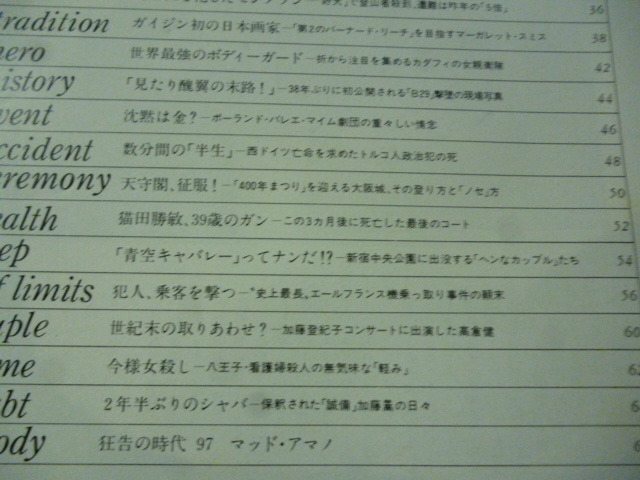 で登山者殺到、遭難は昨年の「5倍」 36
tradition ガイジン初の日本画家—「第2のバーナード・リーチ」を目指すマーガレット・スミス 38
hero 世界最強のボディーガード—折から注目を集めるカダフィの女親衛隊 42
istory 「見たり醜翼の末路!」—38年ぶりに初公開される「B29」撃墜の現場写真 44
vent 沈黙は金?—ポーランド・バレエ・マイム劇団の重々しい情念 46
ccident 数分間の「半生」—西ドイツ亡命を求めたトルコ人政治犯の死 48
eremony 天守閣、征服!—「400年まつり」を迎える大坂城、その登り方と「ノセ」方 50
ealth 猫田勝敏、39歳のガン—この3カ月後に死亡した最後のコート 52
ep 「青空キャバレー」ってナンだ!?—新宿中央公園に出没する「ヘンなカップル」たち 54
f limits 犯人、乗客を撃つ—"史上最長"エールフランス機乗っ取り事件の顛末 56
uple 世紀末の取りあわせ?—加藤登紀子コンサートに出演した高倉健 60
me 今様女殺し—八王子・看護婦殺人の無気味な「軽み」 6
bt 2年半ぶりのシャバ—保釈された「誠備」加藤暠の日々 6
ody 狂告の時代 97 マッド・アマノ 6